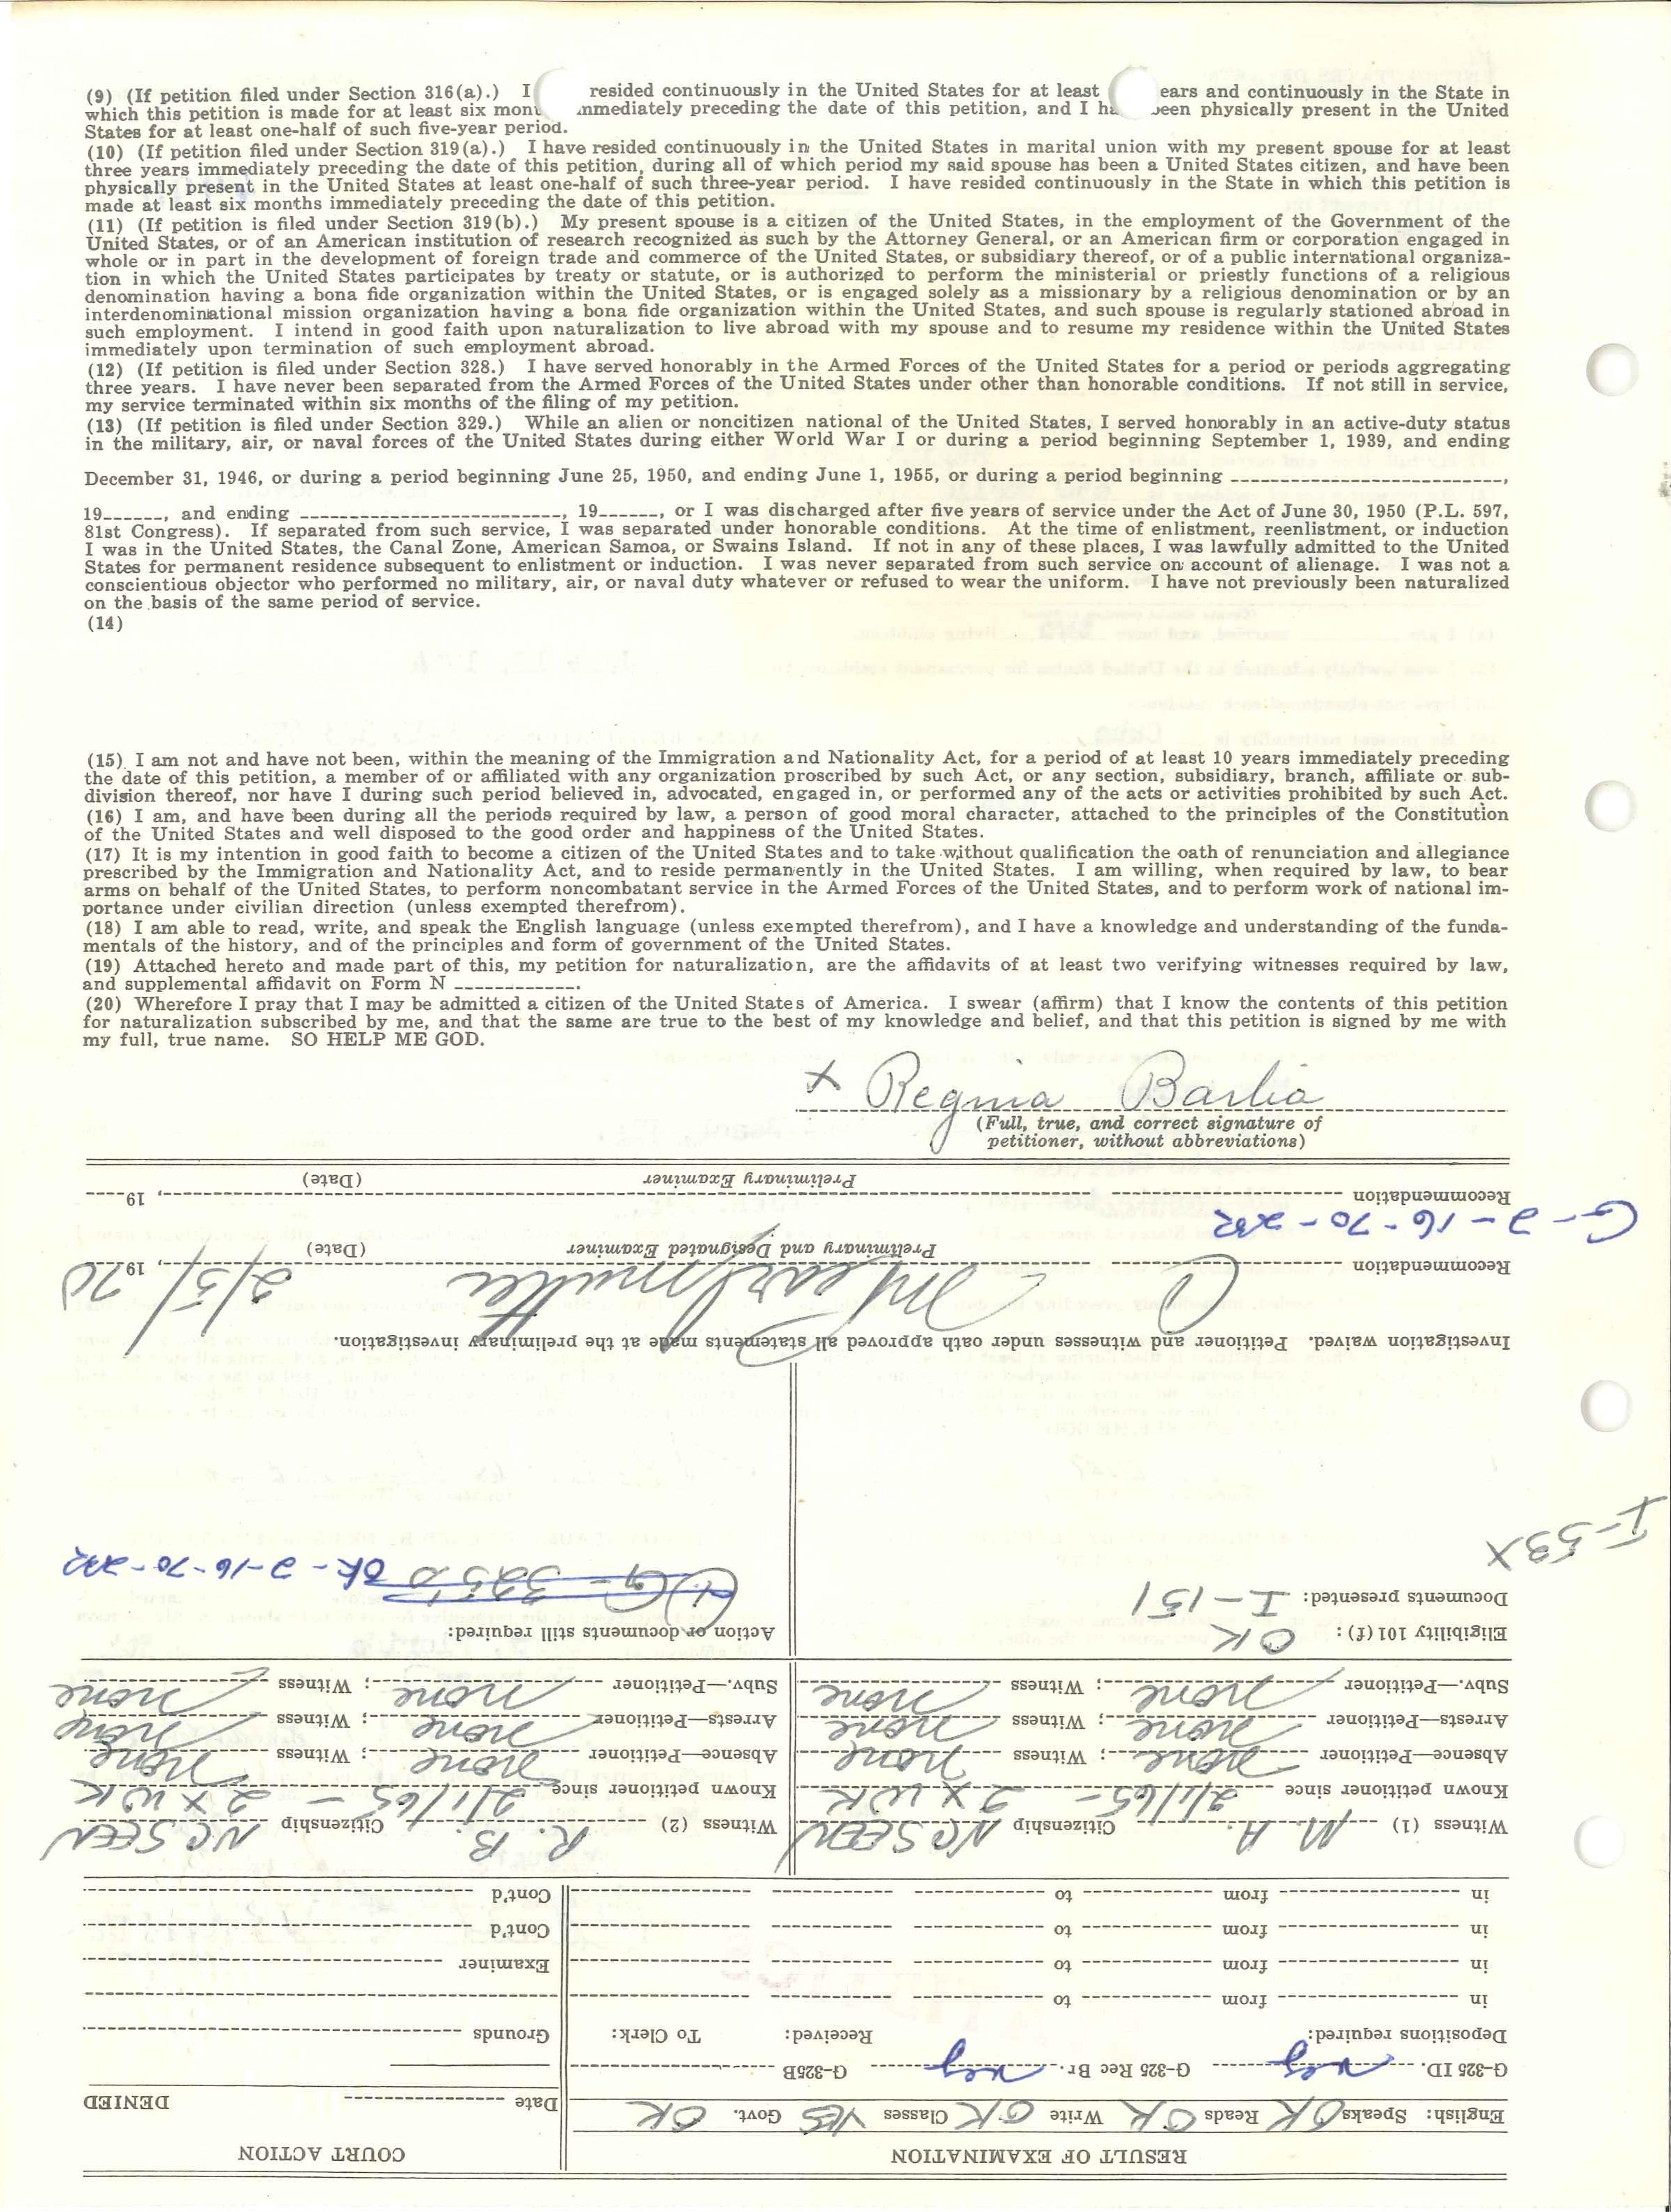 (9) (If petition filed under Section 316(a).) I resided continuously in the United States for at least ears and continuously in the State in
which this petition is made for at least six mon mmediately preceding the date of this petition, and I ha een physically present in the United
States for at least one-half of such five-year period.
(10) (If petition filed under Section 319(a).) I have resided continuously in the United States in marital union with my present spouse for at least
three years immediately preceding the date of this petition, during all of which period my said spouse has been a United States citizen, and have been
physically present in the United States at least one-half of such three-year period. I have resided continuously in the State in which this petition is
made at least six months immediately preceding the date of this petition.
(11) (If petition is filed under Section 319(b).) My present spouse is a citizen of the United States, in the employment of the Government of the
United States, or of an American institution of research recognized as such by the Attorney General, or an American firm or corporation engaged in
whole or in part in the development of foreign trade and commerce of the United States, or subsidiary thereof, or of a public international organiza-
tion in which the United States participates by treaty or statute, or is authorized to perform the ministerial or priestly functions of a religious
denomination having a bona fide organization within the United States, or is engaged solely as a missionary by a religious denomination or by an
interdenominational mission organization having a bona fide organization within the United States, and such spouse is regularly stationed abroad in
such employment. I intend in good faith upon naturalization to live abroad with my spouse and to resume my residence within the United States
immediately upon termination of such employment abroad.
(12) (If petition is filed under Section 328.) I have served honorably in the Armed Forces of the United States for a period or periods aggregating
three years. I have never been separated from the Armed Forces of the United States under other than honorable conditions. If not still in service,
my service terminated within six months of the filing of my petition.
(13) (If petition is filed under Section 329.) While an alien or noncitizen national of the United States, I served honorably in an active-duty status
in the military, air, or naval forces of the United States during either World War I or during a period beginning September 1, 1939, and ending
December 31, 1946, or during a period beginning June 25, 1950, and ending June 1, 1955, or during a period beginning ,
19 , and ending , 19 , or I was discharged after five years of service under the Act of June 30, 1950 (P.L. 597,
81st Congress). If separated from such service, I was separated under honorable conditions. At the time of enlistment, reenlistment, or induction
I was in the United States, the Canal Zone, American Samoa, or Swains Island. If not in any of these places, I was lawfully admitted to the United
States for permanent residence subsequent to enlistment or induction. I was never separated from such service on account of alienage. I was not a
conscientious objector who performed no military, air, or naval duty whatever or refused to wear the uniform. I have not previously been naturalized
on the basis of the same period of service.
(14)
(15) I am not and have not been, within the meaning of the Immigration and Nationality Act, for a period of at least 10 years immediately preceding
the date of this petition, a member of or affiliated with any organization proscribed by such Act, or any section, subsidiary, branch, affiliate or sub-
division thereof, nor have I during such period believed in, advocated, engaged in, or performed any of the acts or activities prohibited by such Act.
(16) I am, and have been during all the periods required by law, a person of good moral character, attached to the principles of the Constitution
of the United States and well disposed to the good order and happiness of the United States.
(17) It is my intention in good faith to become a citizen of the United States and to take without qualification the oath of renunciation and allegiance
prescribed by the Immigration and Nationality Act, and to reside permanently in the United States. I am willing, when required by law, to bear
arms on behalf of the United States, to perform noncombatant service in the Armed Forces of the United States, and to perform work of national im-
portance under civilian direction (unless exempted therefrom).
(18) I am able to read, write, and speak the English language (unless exempted therefrom), and I have a knowledge and understanding of the funda-
mentals of the history, and of the principles and form of government of the United States.
(19) Attached hereto and made part of this, my petition for naturalization, are the affidavits of at least two verifying witnesses required by law,
and supplemental affidavit on Form N .
(20) Wherefore I pray that I may be admitted a citizen of the United States of America. I swear (affirm) that I know the contents of this petition
for naturalization subscribed by me, and that the same are true to the best of my knowledge and belief, and that this petition is signed by me with
my full, true name. SO HELP ME GOD.
x Regina Barlia
(Full, true, and correct signature of
petitioner, without abbreviations)
RESULT OF EXAMINATION COURT ACTION
English: Speaks OK Reads OK Write OK Classes YES Govt. OK Date DENIED
G-325 ID. neg G-325 Rec Br. neg G-325B
Depositions required: Received: To Clerk: Grounds
in from to
in from to Examiner
in from to Cont'd
in from to Cont'd
Witness (1) M. A. Citizenship NC SEEN Witness (2) R. B. Citizenship NC SEEN
Known petitioner since 2/1/65 - 2 X WK Known petitioner since 2/1/65 - 2 X WK
Absence—Petitioner none; Witness none Absence—Petitioner none; Witness none
Arrests—Petitioner none; Witness none Arrests—Petitioner none; Witness none
Subv.—Petitioner none; Witness none Subv.—Petitioner none; Witness none
Eligibility 101(f): OK Action or documents still required:
Documents presented: I-151 (1) G-325 OK-2-16-70-232
I-53X
Investigation waived. Petitioner and witnesses under oath approved all statements made at the preliminary investigation.
Recommendation 2/5/ , 1970
Preliminary and Designated Examiner (Date)
G-2-16-70-232
Recommendation , 19
Preliminary Examiner (Date)